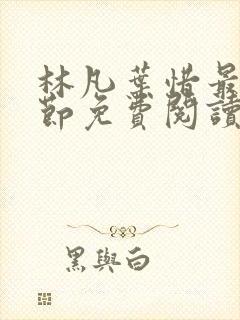 林凡葉惜最
節免費閱讀
黑與白